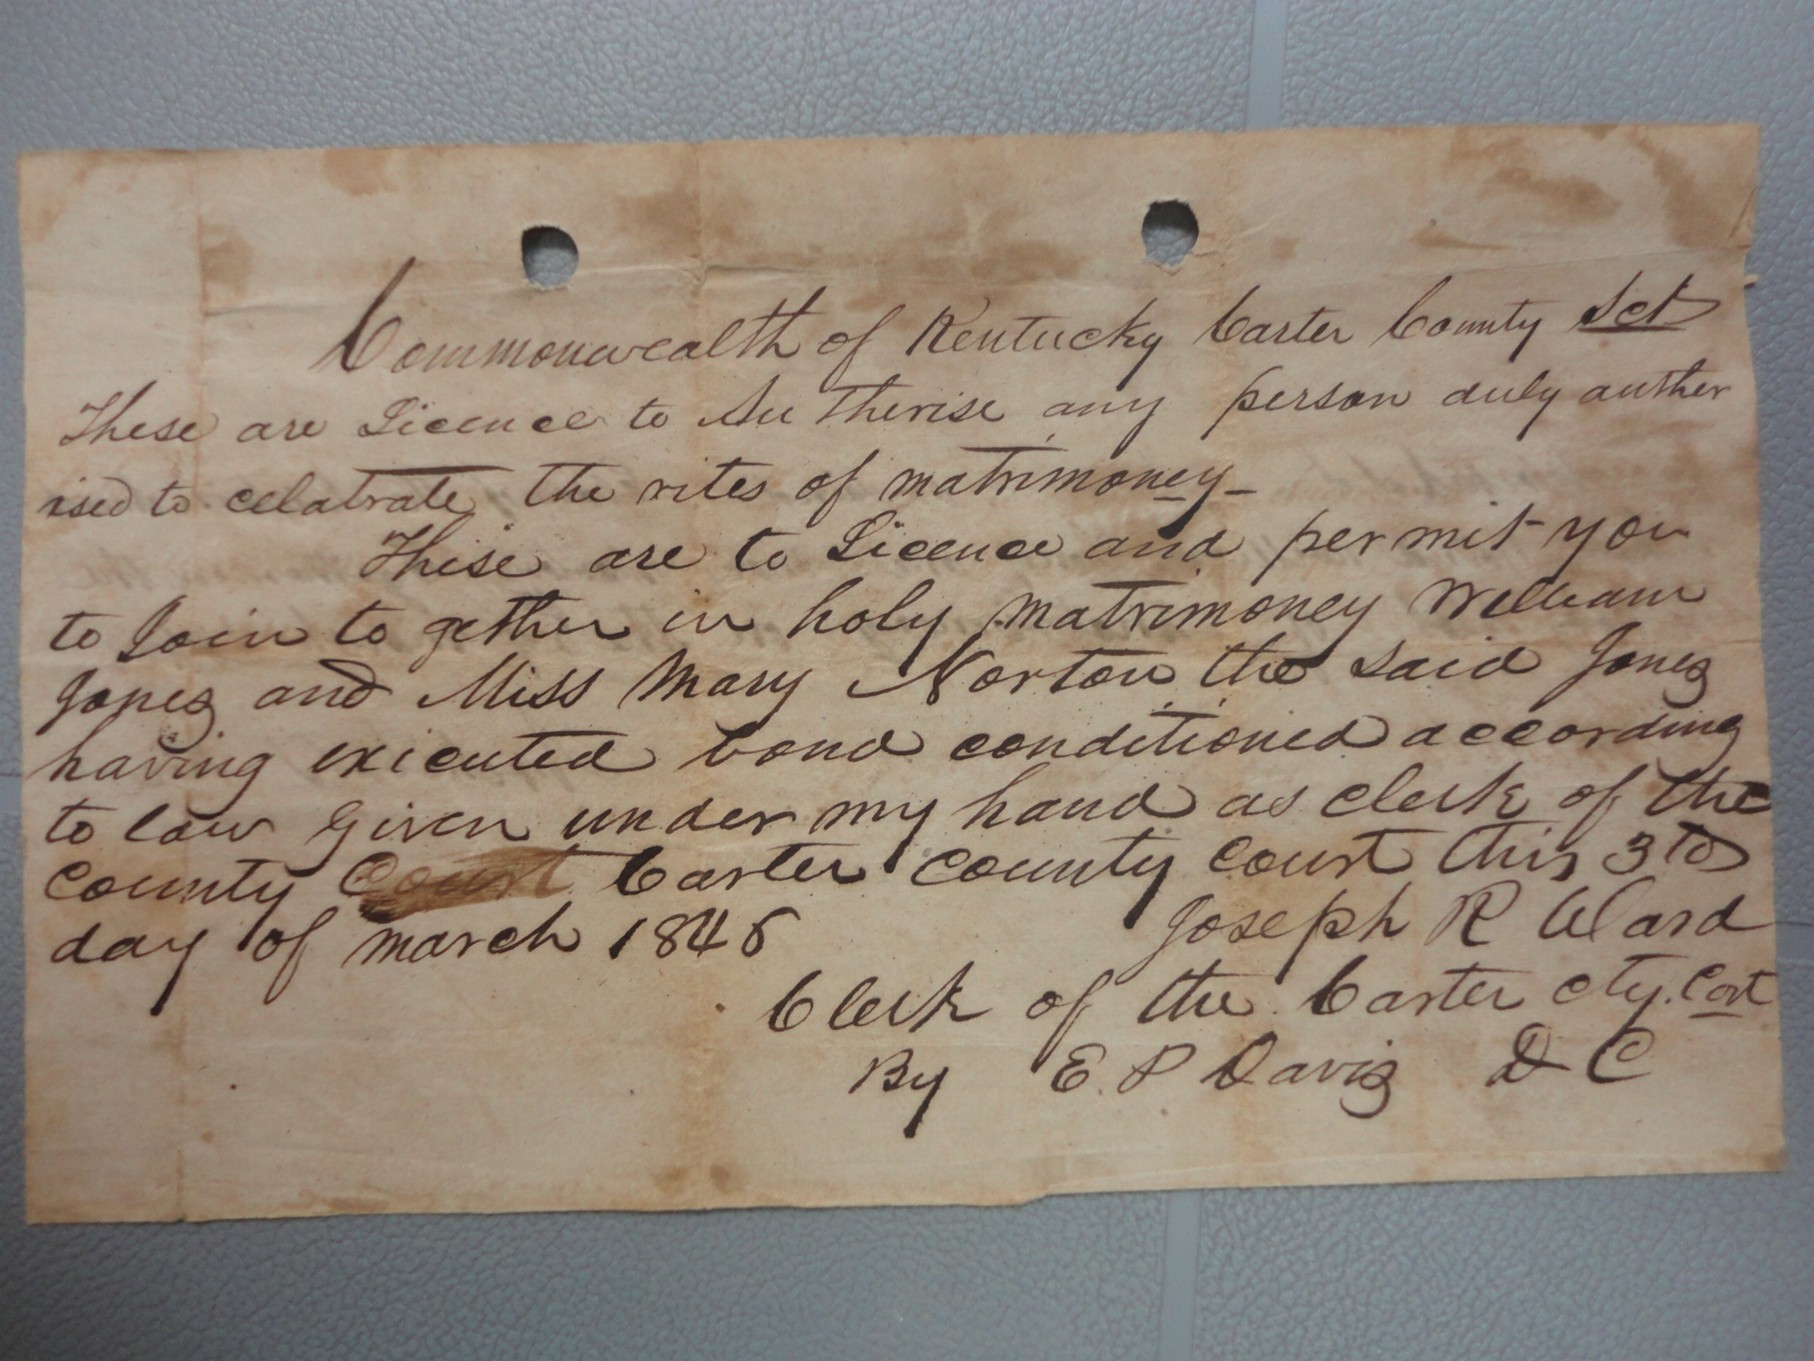 Commonwealth of Kentucky Carter County Sct
These are Licence to Autherise any person duly auther
ised to celabrate the rites of matrimoney
These are to Licence and permit you
to Join to gether in holy matrimoney William
Jones and Miss Mary Norton the said Jones
having executed bond conditioned according
to law Given under my hand as clerk of the
County Court Carter County Court this 3td
day of march 1846
Joseph R Ward
Clerk of the Carter cty. Cort
By E. P Davis D C